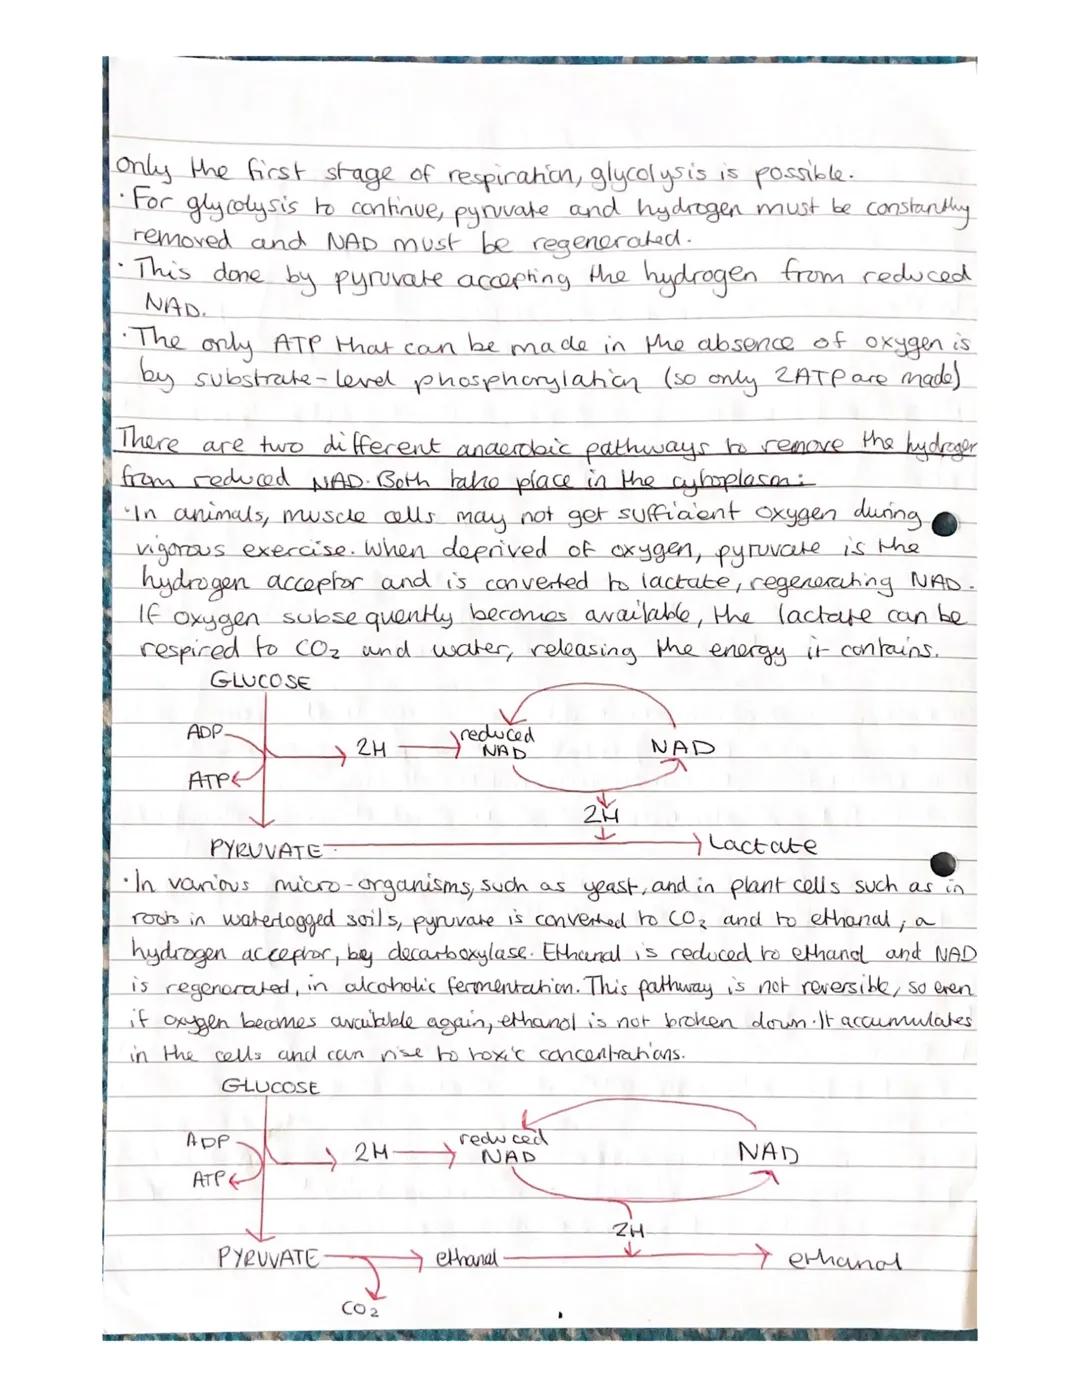 only the first stage of respiration, glycolysis is possible.
· For glycolysis to continue, pyruvate and hydrogen must be constantly
removed and NAD must be regenerated.
· This done by pyruvate accepting the hydrogen from reduced
NAD.
· The only ATP that can be made in the absence of oxygen is
by substrate-level phosphorylation (so only 2ATP are made)
There are two different anaerobic pathways to remove the hydrogen
from reduced NAD. Both take place in the cytoplasm:
· In animals, muscle cells may not get sufficient oxygen during
vigorous exercise. When deprived of oxygen, pyruvate is the
hydrogen acceptor and is converted to lactate, regenerating NAD.
If oxygen subsequently becomes available, the lactate can be
respired to CO₂ and water, releasing the energy it contains.
GLUCOSE
ADP
ATP
2H
reduced
NAD
NAD
2H
PYRUVATE
Lactate
· In various micro-organisms, such as yeast, and in plant cells such as in
roots in waterlogged soils, pyruvate is converted to CO₂ and to ethanal, a
hydrogen acceptor, by decarboxylase. Ethanal is reduced to ethanol and NAD
is regenerated, in alcoholic fermentation. This pathway is not reversible, so even
if oxygen becomes available again, ethanol is not broken down. It accumulates
in the cells and can rise to toxic concentrations.
GLUCOSE
ADP
ATP
2H
reduced
NAD
NAD
2H
PYRUVATE
ethanal
ethanol
CO₂